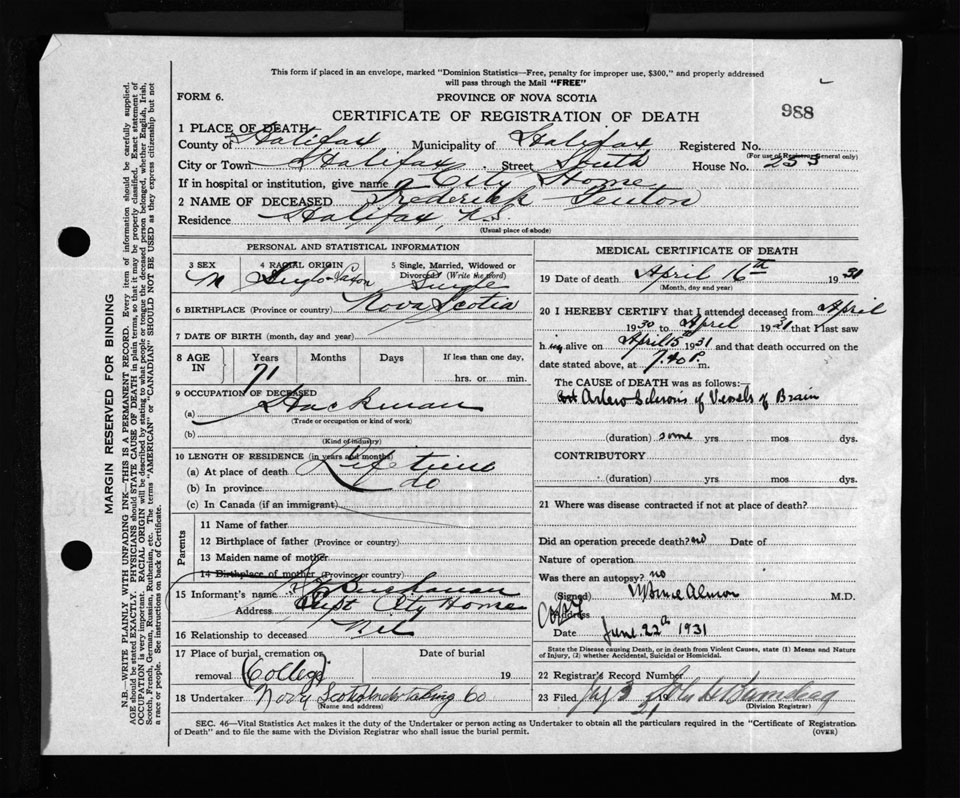 This form if placed in an envelope, marked "Dominion Statistics—Free, penalty for improper use, $300," and properly addressed
will pass through the Mail "FREE"
FORM 6.
PROVINCE OF NOVA SCOTIA
988
CERTIFICATE OF REGISTRATION OF DEATH
1 PLACE OF DEATH
County of Halifax Municipality of Halifax Registered No.
(For use of Registrar General only)
City or Town Halifax Street South House No. 255
If in hospital or institution, give name City Home
2 NAME OF DECEASED Frederick Fenton
Residence Halifax N.S.
(Usual place of abode)
PERSONAL AND STATISTICAL INFORMATION
3 SEX M
4 RACIAL ORIGIN Anglo-Saxon
5 Single, Married, Widowed or Divorced (Write the word) Single
6 BIRTHPLACE (Province or country) Nova Scotia
7 DATE OF BIRTH (month, day and year)
8 AGE IN Years Months Days If less than one day,
71 hrs. or min.
9 OCCUPATION OF DECEASED
(a) Hackman
(Trade or occupation or kind of work)
(b)
(Kind of industry)
10 LENGTH OF RESIDENCE (in years and months)
(a) At place of death Life time
(b) In province do
(c) In Canada (if an immigrant)
Parents
11 Name of father
12 Birthplace of father (Province or country)
13 Maiden name of mother
14 Birthplace of mother (Province or country)
15 Informant's name Buchanan
Address Supt City Home
16 Relationship to deceased Nil
17 Place of burial, cremation or Date of burial
removal (College) 19
18 Undertaker Nova Scotia Undertaking Co
(Name and address)
MEDICAL CERTIFICATE OF DEATH
19 Date of death April 16th 1931
(Month, day and year)
20 I HEREBY CERTIFY that I attended deceased from April
1930 to April 1931 that I last saw
h im alive on April 15th 1931 and that death occurred on the
date stated above, at 7.40 P. m.
The CAUSE of DEATH was as follows:
Arterio Sclerosis of Vessels of Brain
(duration) some yrs mos dys.
CONTRIBUTORY
(duration) yrs mos dys.
21 Where was disease contracted if not at place of death?
Did an operation precede death? no Date of
Nature of operation
Was there an autopsy? no
(Signed) Almon M.D.
Copy
Address
Date June 22nd 1931
State the Disease causing Death, or in death from Violent Causes, state (1) Means and Nature
of Injury, (2) whether Accidental, Suicidal or Homicidal.
22 Registrar's Record Number
23 Filed
(Division Registrar)
SEC. 46—Vital Statistics Act makes it the duty of the Undertaker or person acting as Undertaker to obtain all the particulars required in the "Certificate of Registration
of Death" and to file the same with the Division Registrar who shall issue the burial permit.
(OVER)
MARGIN RESERVED FOR BINDING
N.B.—WRITE PLAINLY WITH UNFADING INK—THIS IS A PERMANENT RECORD. Every item of information should be carefully supplied.
AGE should be stated EXACTLY. PHYSICIANS should STATE CAUSE OF DEATH in plain terms, so that it may be properly classified. Exact statement of
OCCUPATION is very important. RACIAL ORIGIN will be described by stating to what people or tongue the deceased person belonged, whether English, Irish,
Scotch, French, German, Russian, Ruthenian, etc. The terms "AMERICAN" or "CANADIAN" SHOULD NOT BE USED as they express citizenship but not
a race or people. See instructions on back of Certificate.